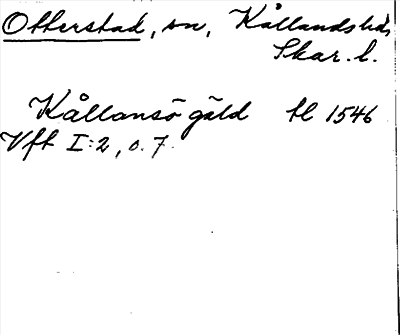 Otterstad, sn, Kållands hd,
Skar. l.
Kållansö gäld tl 1546
Vft I:2, s. 7.